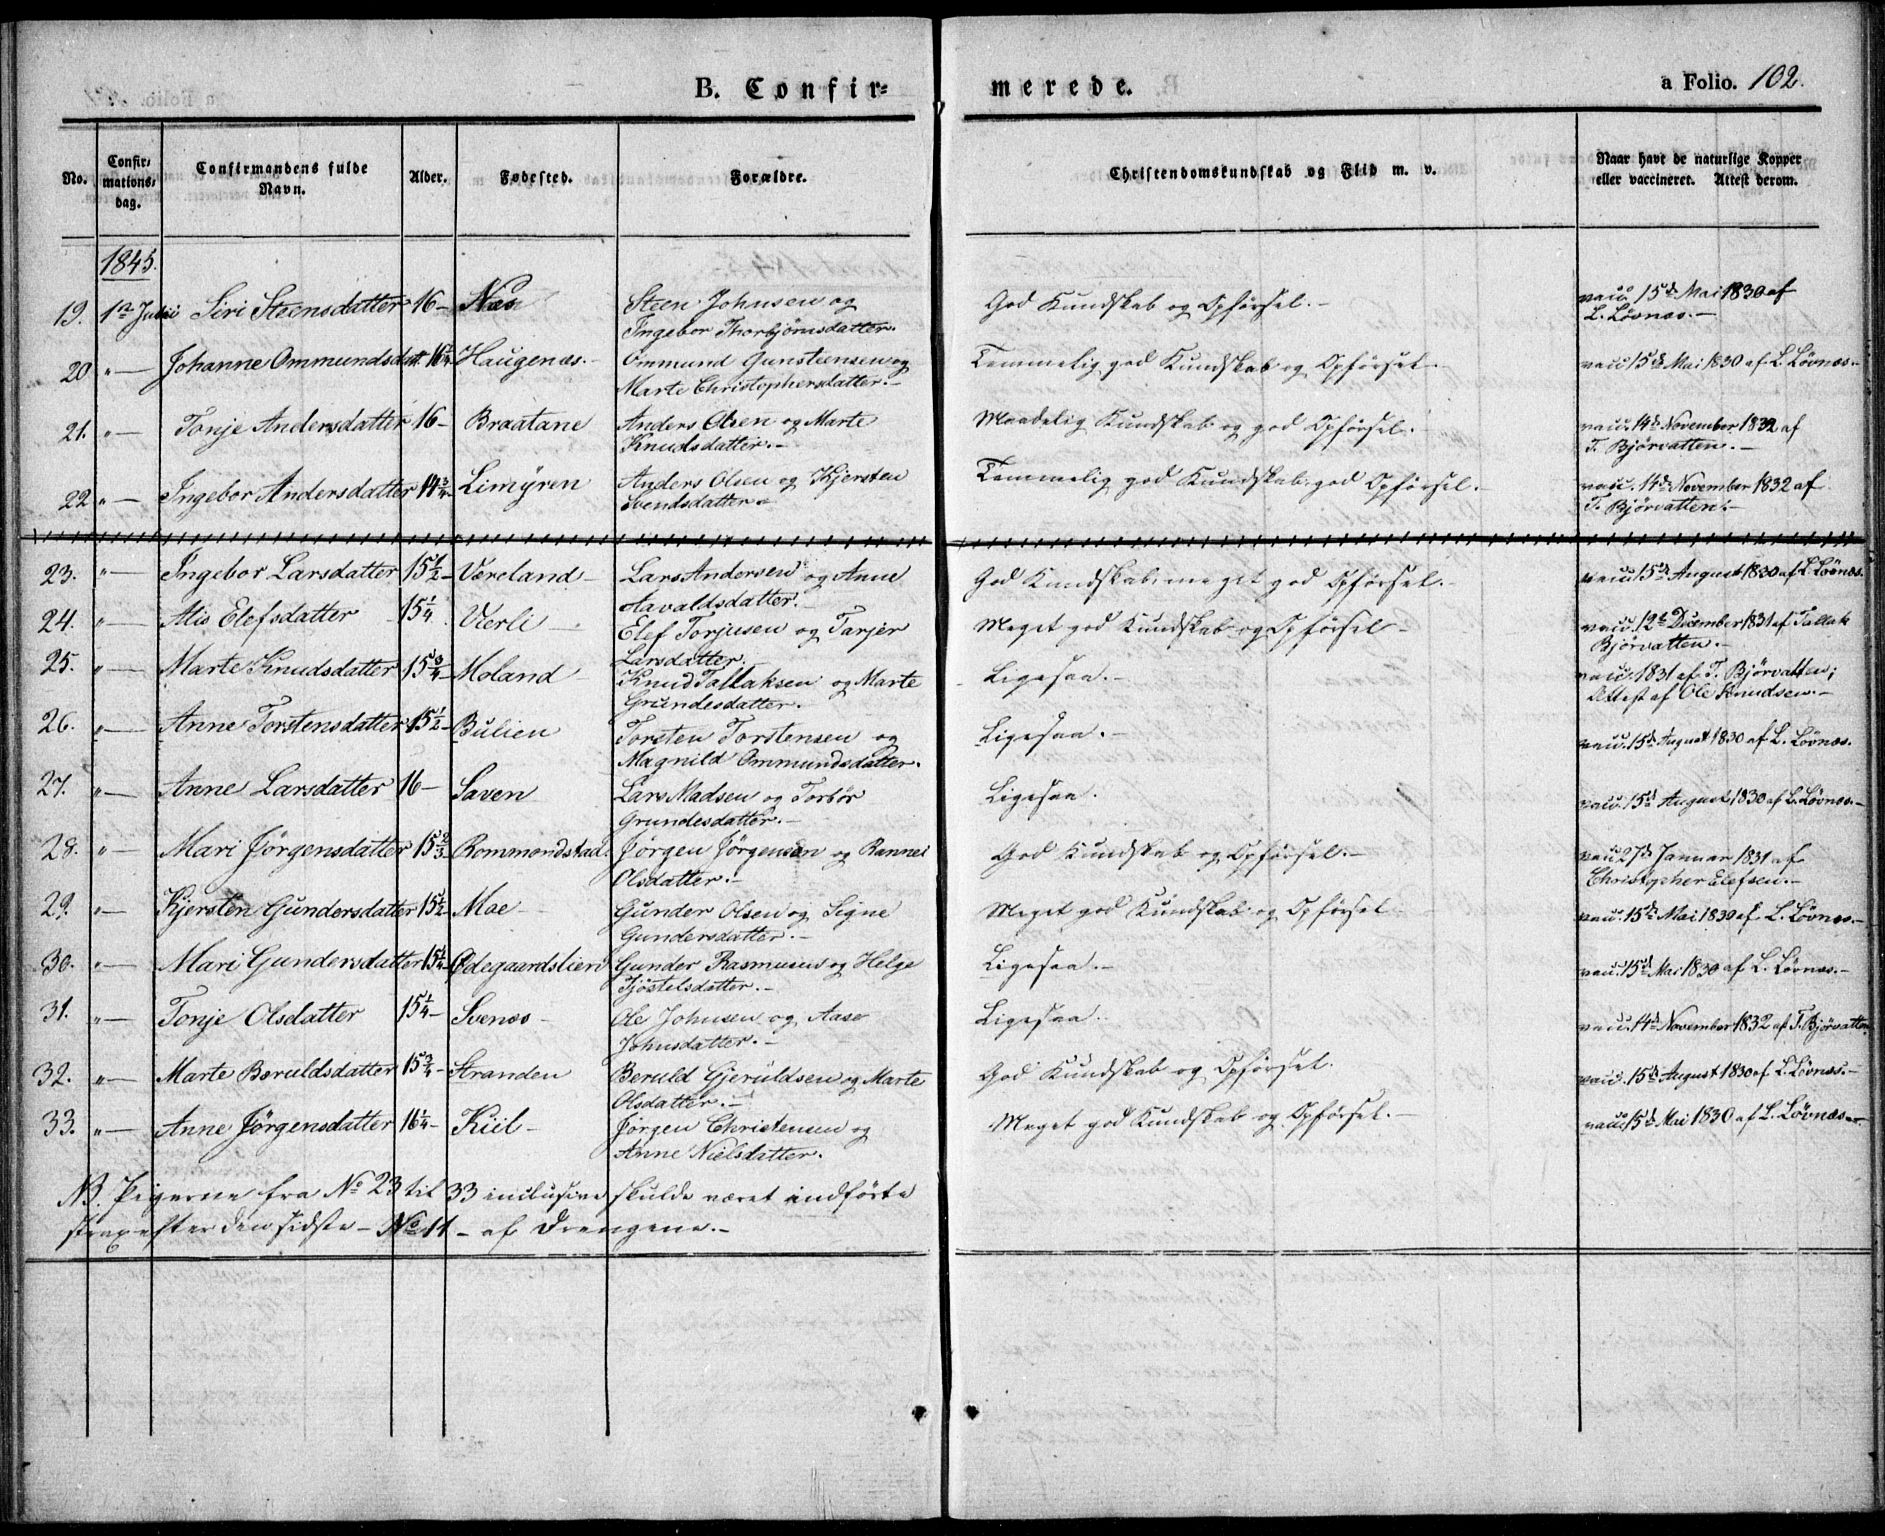 B. Confirmerede. a Folio. 102.
No. Confirmations dag. Confirmandens fulde Navn. Alder. Fødested. Forældre. Christendomskundskab og Flid m. v. Naar havt de naturlige Kopper eller vaccineret. Attest derom.
1845.
19. 1ste Juni Siri Steensdatter 16 – Næs Steen Johnsen og God Kundskab og Opførsel. – vacc. 15de Mai 1830 af
Ingebor Thorbjørnsdatter. L. Løvnæs. –
20 " – Johanne Ommundsdatt 16 1/4 Haugenæs. – Ommund Gunsteensen og Temmelig god Kundskab og Opførsel. – vacc. 15de Mai 1830 af L. Løvnæs. –
Marte Christophersdatter. –
21. " – Tonje Andersdatter 16 – Braatane Anders Olsen og Marte Maadelig Kundskab og god Opførsel. vacc. 14de November 1832 af
Knudsdatter. – T. Bjørvatten. –
22 " – Ingebor Andersdatter 14 3/4 – Limyren Anders Olsen og Kjersten Temmelig god Kundskab, god Opførsel. – vacc. 14de November 1832 af
Svendsdatter – T. Bjørvatten. –
23. " – Ingebor Larsdatter 15 1/2 – Væreland – Lars Andersen og Anne God Kundskab, meget god Opførsel. – vacc. 15de August 1830 af L. Løvnæs.
Aavaldsdatter. –
24. " – Alis Elefsdatter 15 1/4 Værli – Elef Torjusen og Tarjer Meget god Kundskab og Opførsel – vacc. 12te December 1831 af Tallak
Larsdatter. Bjørvatten. –
25. " – Marte Knudsdatter 15 3/4 – Moland Knud Tallaksen og Marte Ligesaa. – vacc. 1831 af T. Bjørvatten;
Grundesdatter. Attest af Ole Knudsen. –
26. " – Anne Torstensdatter 15 1/2 – Bulien Torsten Torstensen og Ligesaa. – vacc. 15de August 1830 af L. Løvnæs.
Magnild Ommundsdatter.
27. " – Anne Larsdatter 16 – Saven Lars Madsen og Torbør Ligesaa. vacc. 15de August 1830 af L. Løvnæs. –
Grundesdatter. –
28. " – Mari Jørgensdatter 15 2/3 Rommondstad. Jørgen Jørgensen og Rannei God Kundskab og Opførsel. – vacc 27de Januar 1831 af
Olsdatter. – Christopher Elefsen. –
29. " – Kjersten Gundersdatter 15 1/2 – Moe – Gunder Olsen og Signe Meget god Kundskab og Opførsel. vacc. 15de Mai 1830 af L. Løvnæs. –
Gundersdatter. –
30. " – Mari Gundersdatter 15 1/4 – Ødegaardslien Gunder Rasmusus og Helge Ligesaa. – vacc. 15de Mai 1830 af L. Løvnæs. –
Tjøstelsdatter. –
31. " – Tonje Olsdatter 15 1/4 – Svenæs – Ole Johnsen og Aase Ligesaa. – vacc. 14de November 1832 af T. Bjørvatten
Johnsdatter. –
32. " – Marte Beruldsdatter 15 3/4 – Stranden Beruld Gjeruldsen og Marte God Kundskab og Opførsel. vacc. 15de August 1830 af L. Løvnæs. –
Olsdatter. –
33. " – Anne Jørgensdatter 16 1/4 – Kiil – Jørgen Christensen og Meget god Kundskab og Opførsel. – vacc. 15de Mai 1830 af L. Løvnæs. –
Anne Nielsdatter.
NB. Pigerne fra No 23 til 33 inclusive skulde været indførte
strax efter den sidste – No 11 – af Drengene. –